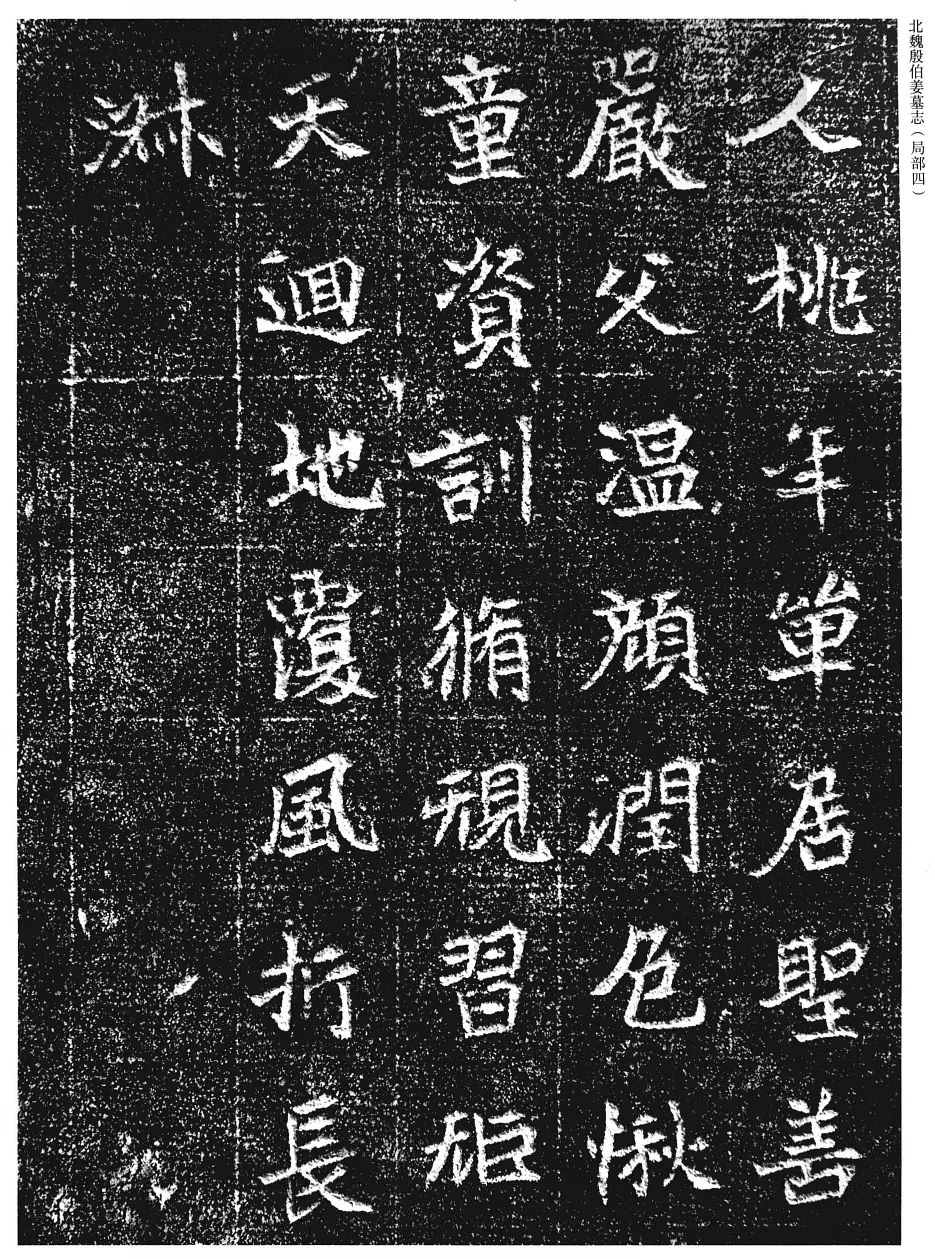 北魏殷伯姜墓志（局部四）
人桃年單居聖善
嚴父溫顏潤色愀
童資訓脩規習矩
天迴地覆風折長